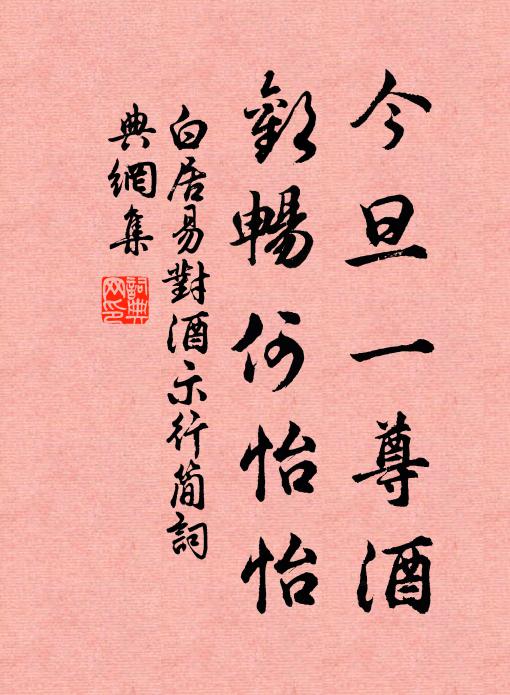 今旦一尊酒
歡暢何怡怡
白居易對酒示行簡詞
典網集
詞典網印